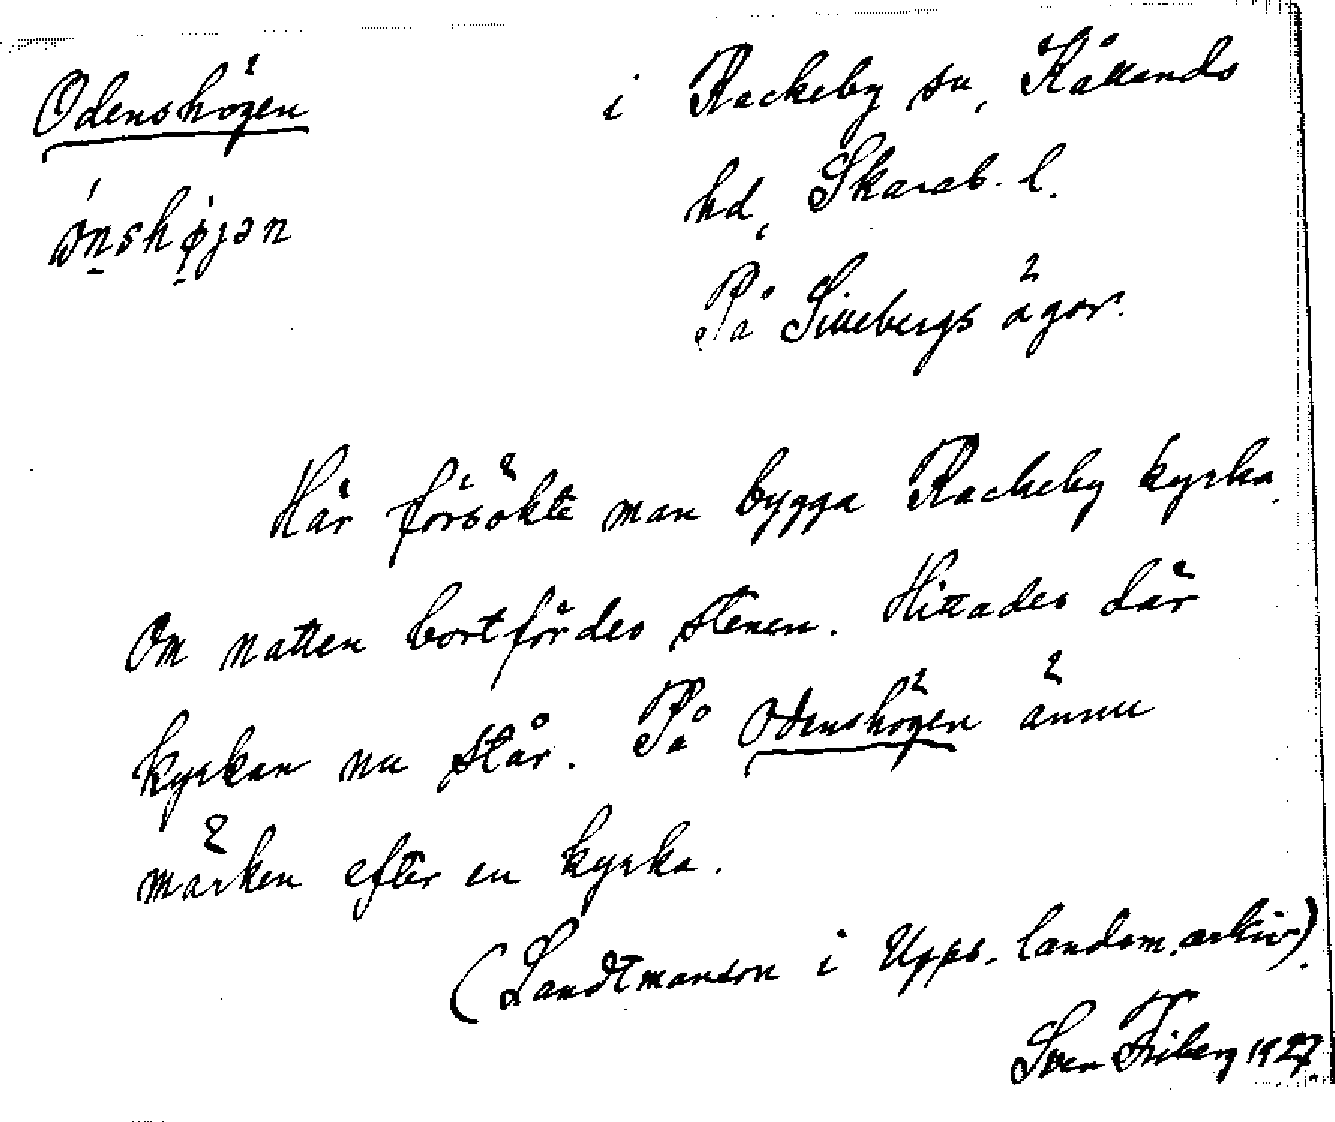 Odenshögen i Rackeby sn, Kållands
hd, Skarab. l.
På Sillebergs ägor.
Här försökte man bygga Rackeby kyrka.
Om natten bortfördes stenen. Hittades där
kyrkan nu står. På Odenshögen ännu
märken efter en kyrka.
(Landtmanson i Upps. landsm. arkiv).
Sven Friberg 1927.